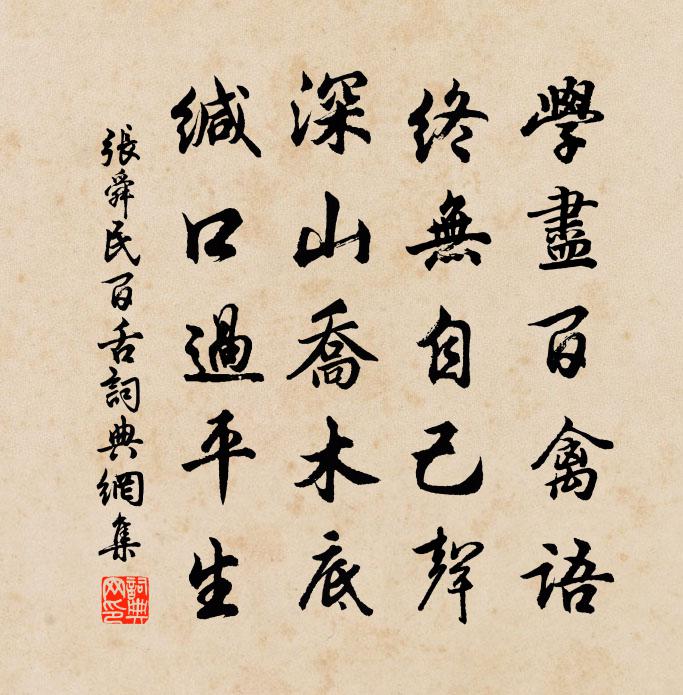 學盡百禽語
終無自己聲
深山喬木底
緘口過平生
張舜民百舌詞典網集
詞典網印